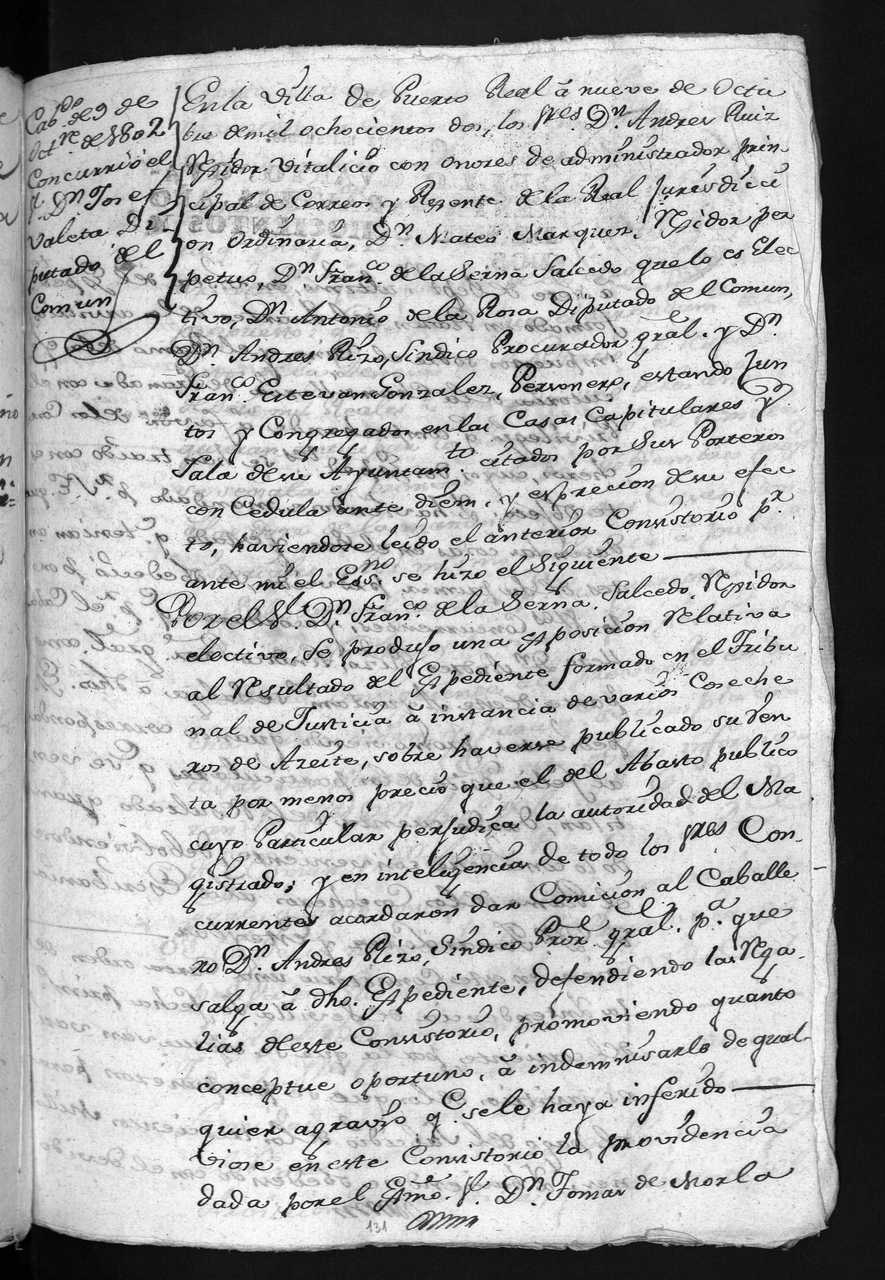 Cab.do de 9 de
Oct.re de 1802
Concurrió el
S.r D.n Josef
Valeta Di
putado del
Comun
En la Villa de Puerto Real á nueve de Octu
bre de mil ochocientos dos, los Sres. D.n Andres Ruiz
Rexidor Vitalicio con onores de administrador prin
cipal de Correos y Rexente de la Real Jurisdicci
on Ordinaria, D.n Mateo Marquez, Rexidor per
petuo, D.n Fran.co de la Serna Salcedo que lo es Elec
tivo, D.n Antonio de la Rosa Diputado del Comun,
D.n Andres Rizo, Sindico Procurador gral. y D.n
Fran.co Estevan Gonzalez, Personero, estando Jun
tos y Congregados en las Casas Capitulares y
Sala de su Ayuntam.to citados por sus Porteros
con Cedula ante diem, y expresion de su efec
to, haviendose leido el anterior Consistorio p.r
ante mi el Ess.no se hizo el Siguiente
Por el S.r D.n Fran.co de la Serna Salcedo, Rexidor
electivo, se produjo una exposicion Relativa
al Resultado del Expediente formado en el Tribu
nal de Justicia á instancia de varios Coseche
ros de Azeite, sobre haverse publicado su ven
ta por menos precio que el del Abasto publico
cuyo Particular perjudica la autoridad del Ma
gistrado; y en inteligencia de todo los Sres Con
currentes acordaron dar Comicion al Caballe
ro D.n Andres Rizo, Sindico Pror. gral. p.a que
salga á dho. Expediente, defendiendo las Rega
lias de este Consistorio, promoviendo quanto
conceptue oportuno, á indemnisarlo de qual
quier agravio q.e se le haya inferido
Viose en este Consistorio la providencia
dada por el Exmo. S.r D.n Tomas de Morla
131